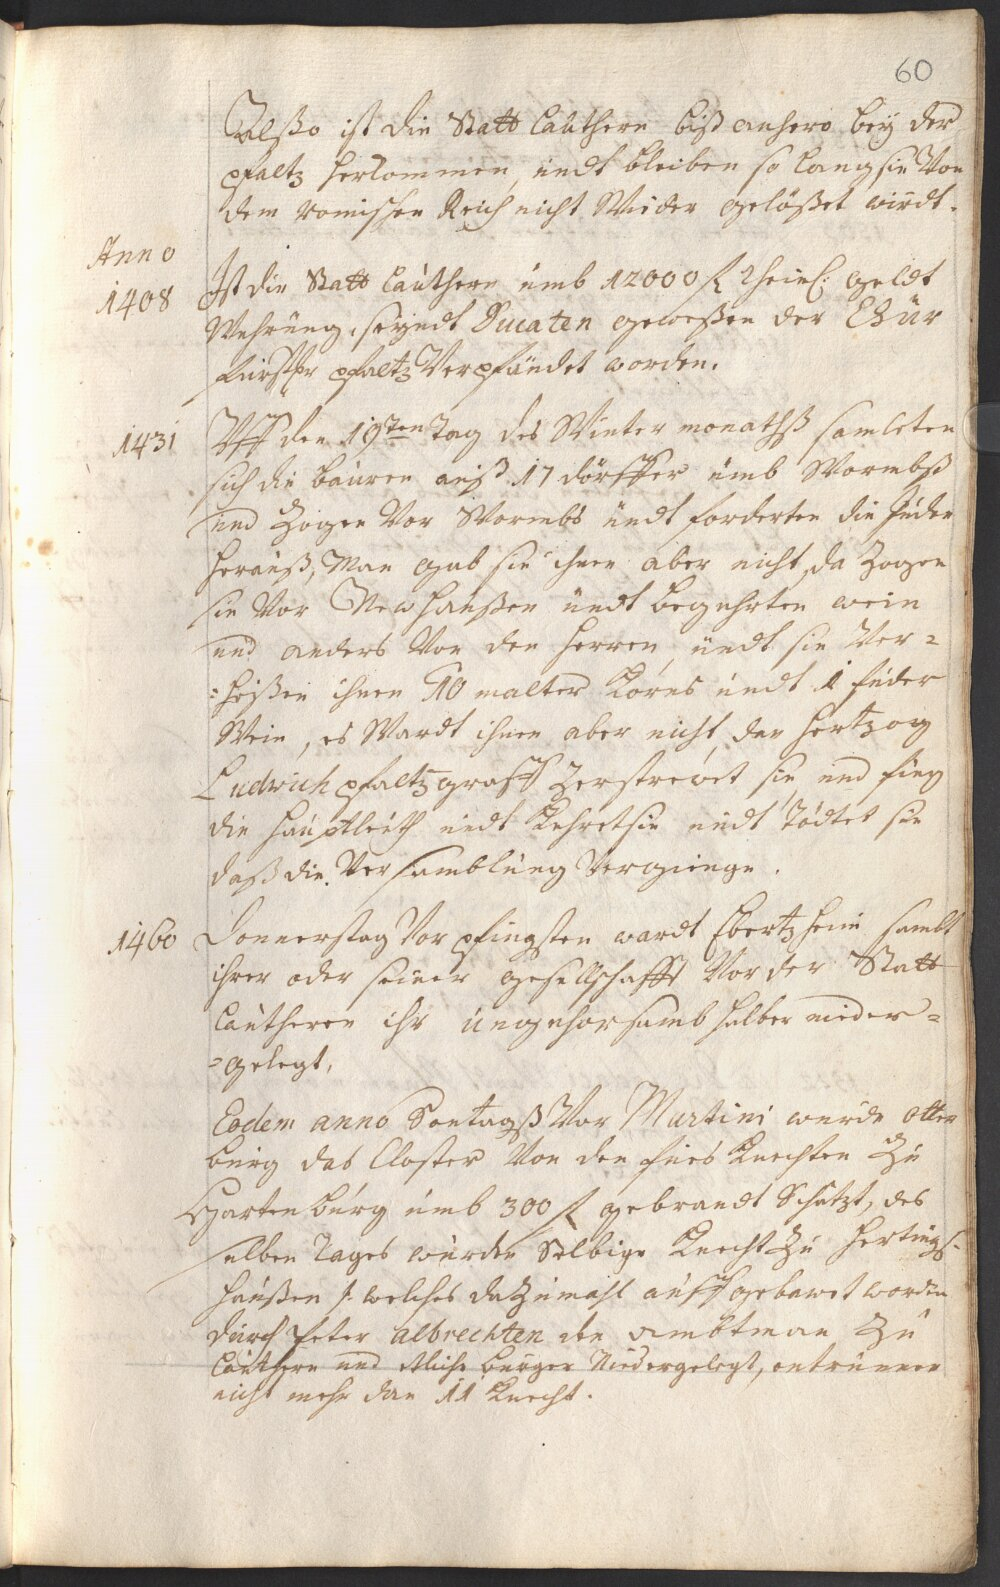 60
Alßo ist die Statt Lauthern biß anhero bey der
pfaltz herkommen, undt bleiben so lang sie Von
dem Romischen Reich nicht Wider gelößet wirdt.
Anno
1408
Ist die Statt Lauthern umb 12000 fl Rheinl: geldt
Wehrung, seyndt Ducaten geweßen der Chur
fürstl pfaltz Verpfändet worden.
1431
Uff den 19ten Tag des Winter monathß samleten
sich die Bauren auß 17 dörffer umb Wormbß
und Zogen Vor Wormbs undt forderten die Juden
herauß, Man gab sie ihnen aber nicht, da Zogen
sie Vor Newhaußen undt begehrten wein
und anders Von den Herren, undt sie Ver=
=hißen ihnen 10 malter Korns undt 1 fuder
Wein, es Wardt ihnen aber nicht, der Hertzog
Ludwich pfaltzgraff Zerstrewet sie und fieng
die Hauptleuth undt Kehret sie undt Tödtet sie
daß die Versamblung Vergienge.
1460
Donnerstag Vor pfingsten wardt Ebertzheim sambt
ihrer oder seiner gesellschafft Vor der Statt
Lautheren ihr ungehorsamb halber nieder=
=gelegt,
Eodem anno Sontagß Vor Martini wurde Otter
burg das Closter Von den Knechten Zu
Hartenburg umb 300 fl gebrandt Schätzt, des
selben Tages wurden Selbige Knecht Zu Hertings=
haußen /: welches daZumahl auffgebawet worden
durch Peter Albrechten den ambtman Zu
Lauthern und etliche burger Niedergelegt, entrunnen
nicht mehr dan 11 Knecht.